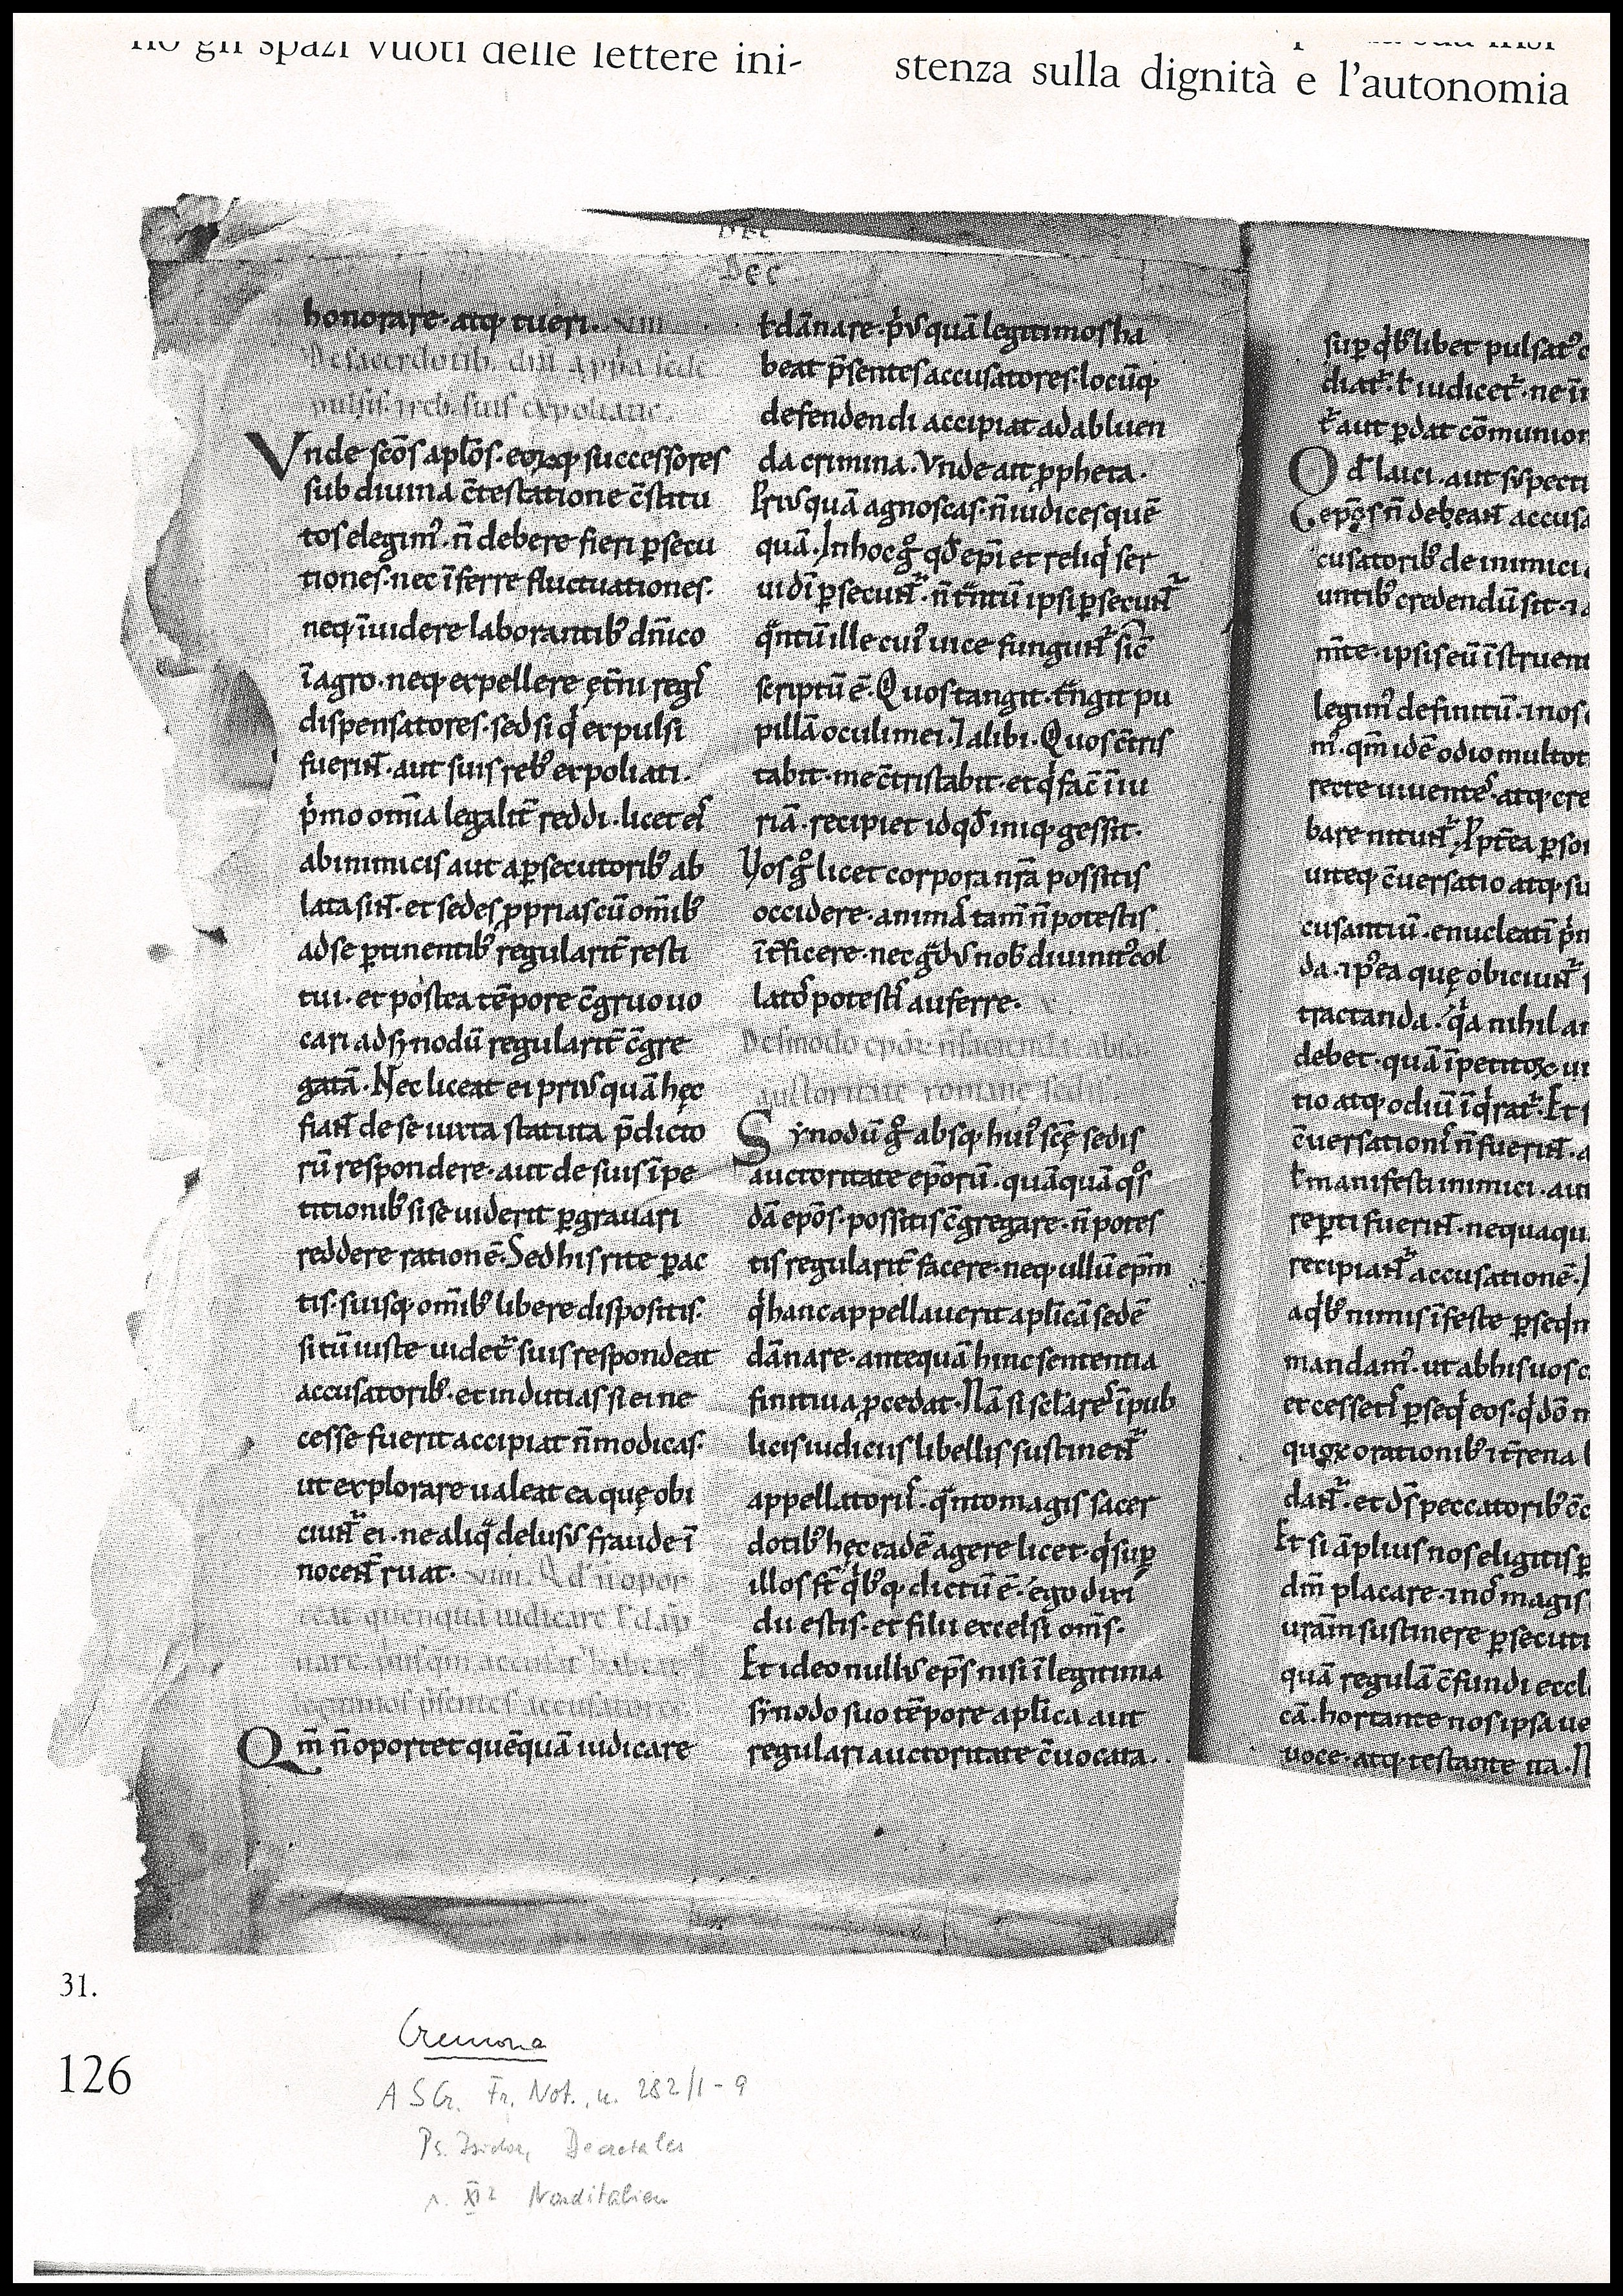 no gli spazi vuoti delle lettere ini-
stenza sulla dignità e l'autonomia
Dec
honorare· atq; tueri. xviii
De sacerdotib.
pulsis. reb. suis expoliatis.
Vnde scōs aplōs· eorūq; successores
sub diuina c̄testatione c̄stitu
tos elegim᾽· n̄ debere fieri ꝑsecu
tiones· nec īferre fluctuationes·
neq; īuidere laborantib᾽ dn̄ico
ī agro· neq; expellere ęt̄ni reḡ
dispensatores· sed si q͛ expulsi
fuerit̄· aut suis reb᾽ expoliati·
p͛mo om̄ia legalit̄ reddi· licet ei᾽
ab inimicis aut a ꝑsecutorib᾽ ab
lata sint̄· et sedes ꝓprias cū om̄ib᾽
ad se ꝑtinentib᾽ regularit̄ resti
tui· et postea tēpore c̄gruo uo
cari ad synodū regularit̄ c̄gre
gatā· Nec liceat ei priusquā hęc
fiant̄ de se iuxta statuta p̄dicto
rū respondere· aut de suis īpe
titionib᾽ si se uiderit ꝑgrauari
reddere rationē· Sed his rite ꝑac
tis· suisq; om̄ib᾽ libere dispositis·
si tū iuste uidet᷑ suis respondeat
accusatorib᾽· et indutias si ei ne
cesse fuerit accipiat n̄ modicas·
ut explorare ualeat ea quę obi
ciunt᷑ ei· ne aliq̃ delusus fraude ī
nocent̄ ruat· xviiii. Qd n̄ opor
teat quenquā iudicare ł dāp
nare·
legitimos p̄sentes accusatores·
Qm̄ n̄ oportet quēquā iudicare
ł dānare· p͛usquā legitimos ha
beat p̄sentes accusatores· locūq;
defendendi accipiat ad abluen
da crimina· Vnde ait ꝓpheta·
Priusquā agnoscas· n̄ iudices quē
quā· In hoc g͛ qd̄ epī et reliq͛ ser
ui dī ꝑsecunt᷑· n̄ tn̄tū ipsi ꝑsecunt᷑
q̃ntū ille cui᾽ uice fungunt᷑ sic̄
scriptū ē· Qui uos tangit· tn̄git pu
pillā oculi mei· ⁊ alibi· Qui uos c̄tris
tabit· me c̄tristabit· et q͛ fac̄ īiu
riā· recipiet id qd̄ iniq; gessit·
Vos g͛ licet corpora nr̄a possitis
occidere· animā tam̄ n̄ potestis
īt̄ficere· nec g̃dus nob᾽ diuinit᾽ col
lato᾽ potesti᾽ auferre·
De sinodo epōr n̄ facienda absq;
auctoritate romanę sedis.
Synodū g͛ absq; hui᾽ scę̄ sedis
auctoritate epōrū· quāquā q͛s
dā epōs· possitis c̄gregare· n̄ potes
tis regularit̄ facere· neq; ullū epm̄
q͛ hanc appellauerit aplicā sedē
dānare· antequā hinc sententia
finitiua ꝓcedat· Nā si sclares̄ ī pub
licis iudiciis libellis sustinent᷑
appellatorii᾽· q̃nto magis sacer
dotib᾽ hęc eadē agere licet· q͛ sup
illos st̄ q͛b᾽q; dictū ē· ego dixi
dii estis· et filii excelsi om̄s·
Et ideo nullus eps̄ nisi ī legitima
synodo suo tēpore aplica aut
regulari auctoritate c̄uocata·
sup q͛b᾽libet pulsat᾽
diat᷑· ł iudicet᷑· ne īn
ł aut ꝑdat cōmunion
Qd̄ laici· aut suspecti
epōs n̄ debeant̄ accusa
cusatorib᾽ de inimici
untib᾽ credendū sit·
m̄te· ipsis eū īstruent
legim᾽ definitū·
m᾽· qm̄ idē odio multot
recte uiuente᾽· atq; cre
bare nitunt᷑· Ppt̄ea ꝑso
uiteq; c̄uersatio atq; su
cusantiū· enucleati p͛m
da· ⁊ p᾽ea quę obiciunt᷑
tractanda· q͛a nihil al
debet· quā īpetitor ui
tio atq; odiū īq͛rat᷑· Et
c̄uersationi᾽ n̄ fuerint̄·
ł manifesti inimici· aut
reꝑti fuerint̄· nequaqu
recipiant᷑ accusationē·
a q͛b᾽ nimis īfeste ꝑseq͛m
mandam᾽· ut ab his uos
et cesseti᾽ ꝑseq͛ eos·
quoꝝ orationib᾽ īt̄rena
dant̄· et ds̄ peccatorib᾽
Et si āplius nos eligitis
dm̄ placare· ⁊ nō magis
uram sustinere ꝑsecuti
quā regulā c̄fundi eccl
cā· hortante nos ipsa ue
uoce· atq; testante ita·
31.
126
Cremona
ASCr. Fr. Not., n. 282/1-9
Ps. Isidor, Decretales
s. XI² Norditalien